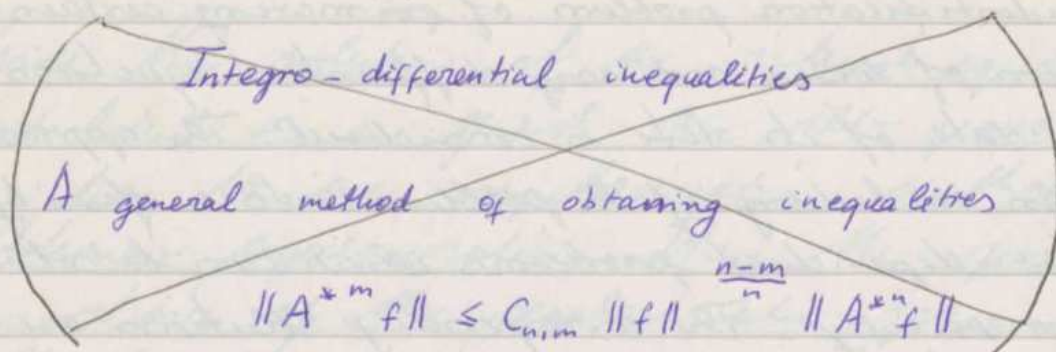 Integro-differential inequalities
A general method of obtaining inequalities
‖A*ᵐ f‖ ≤ C_{n,m} ‖f‖^{\frac{n-m}{n}} ‖A*ⁿ f‖